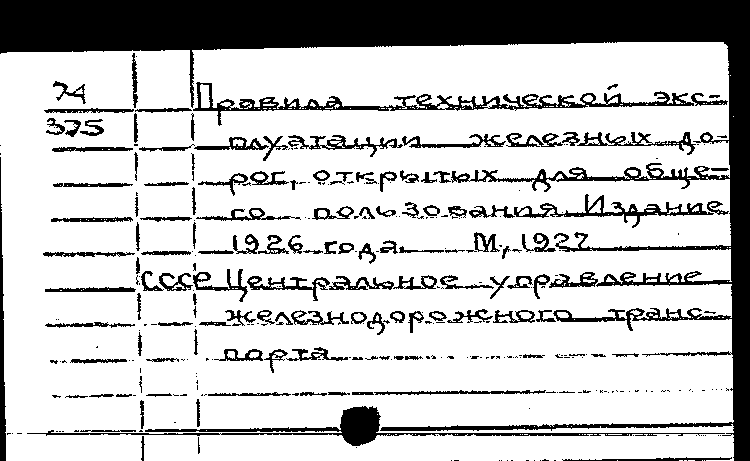 74 Правила технической экс-
375 плуатации железных до-
рог, открытых для обще-
го пользования. Издание
1926 года. М, 1927
СССР Центральное управление
железнодорожного транс-
порта